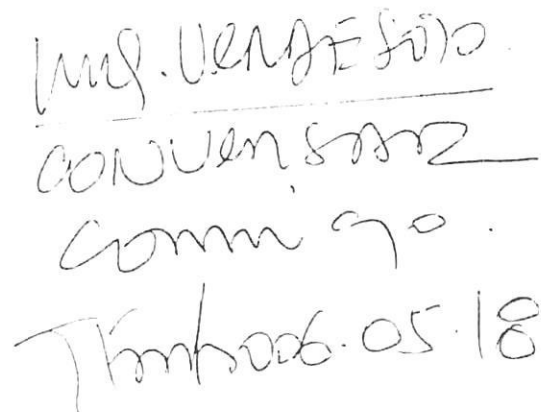 Ing. VERDESOTO.
CONVERSAR
conmigo.
2006.05.18